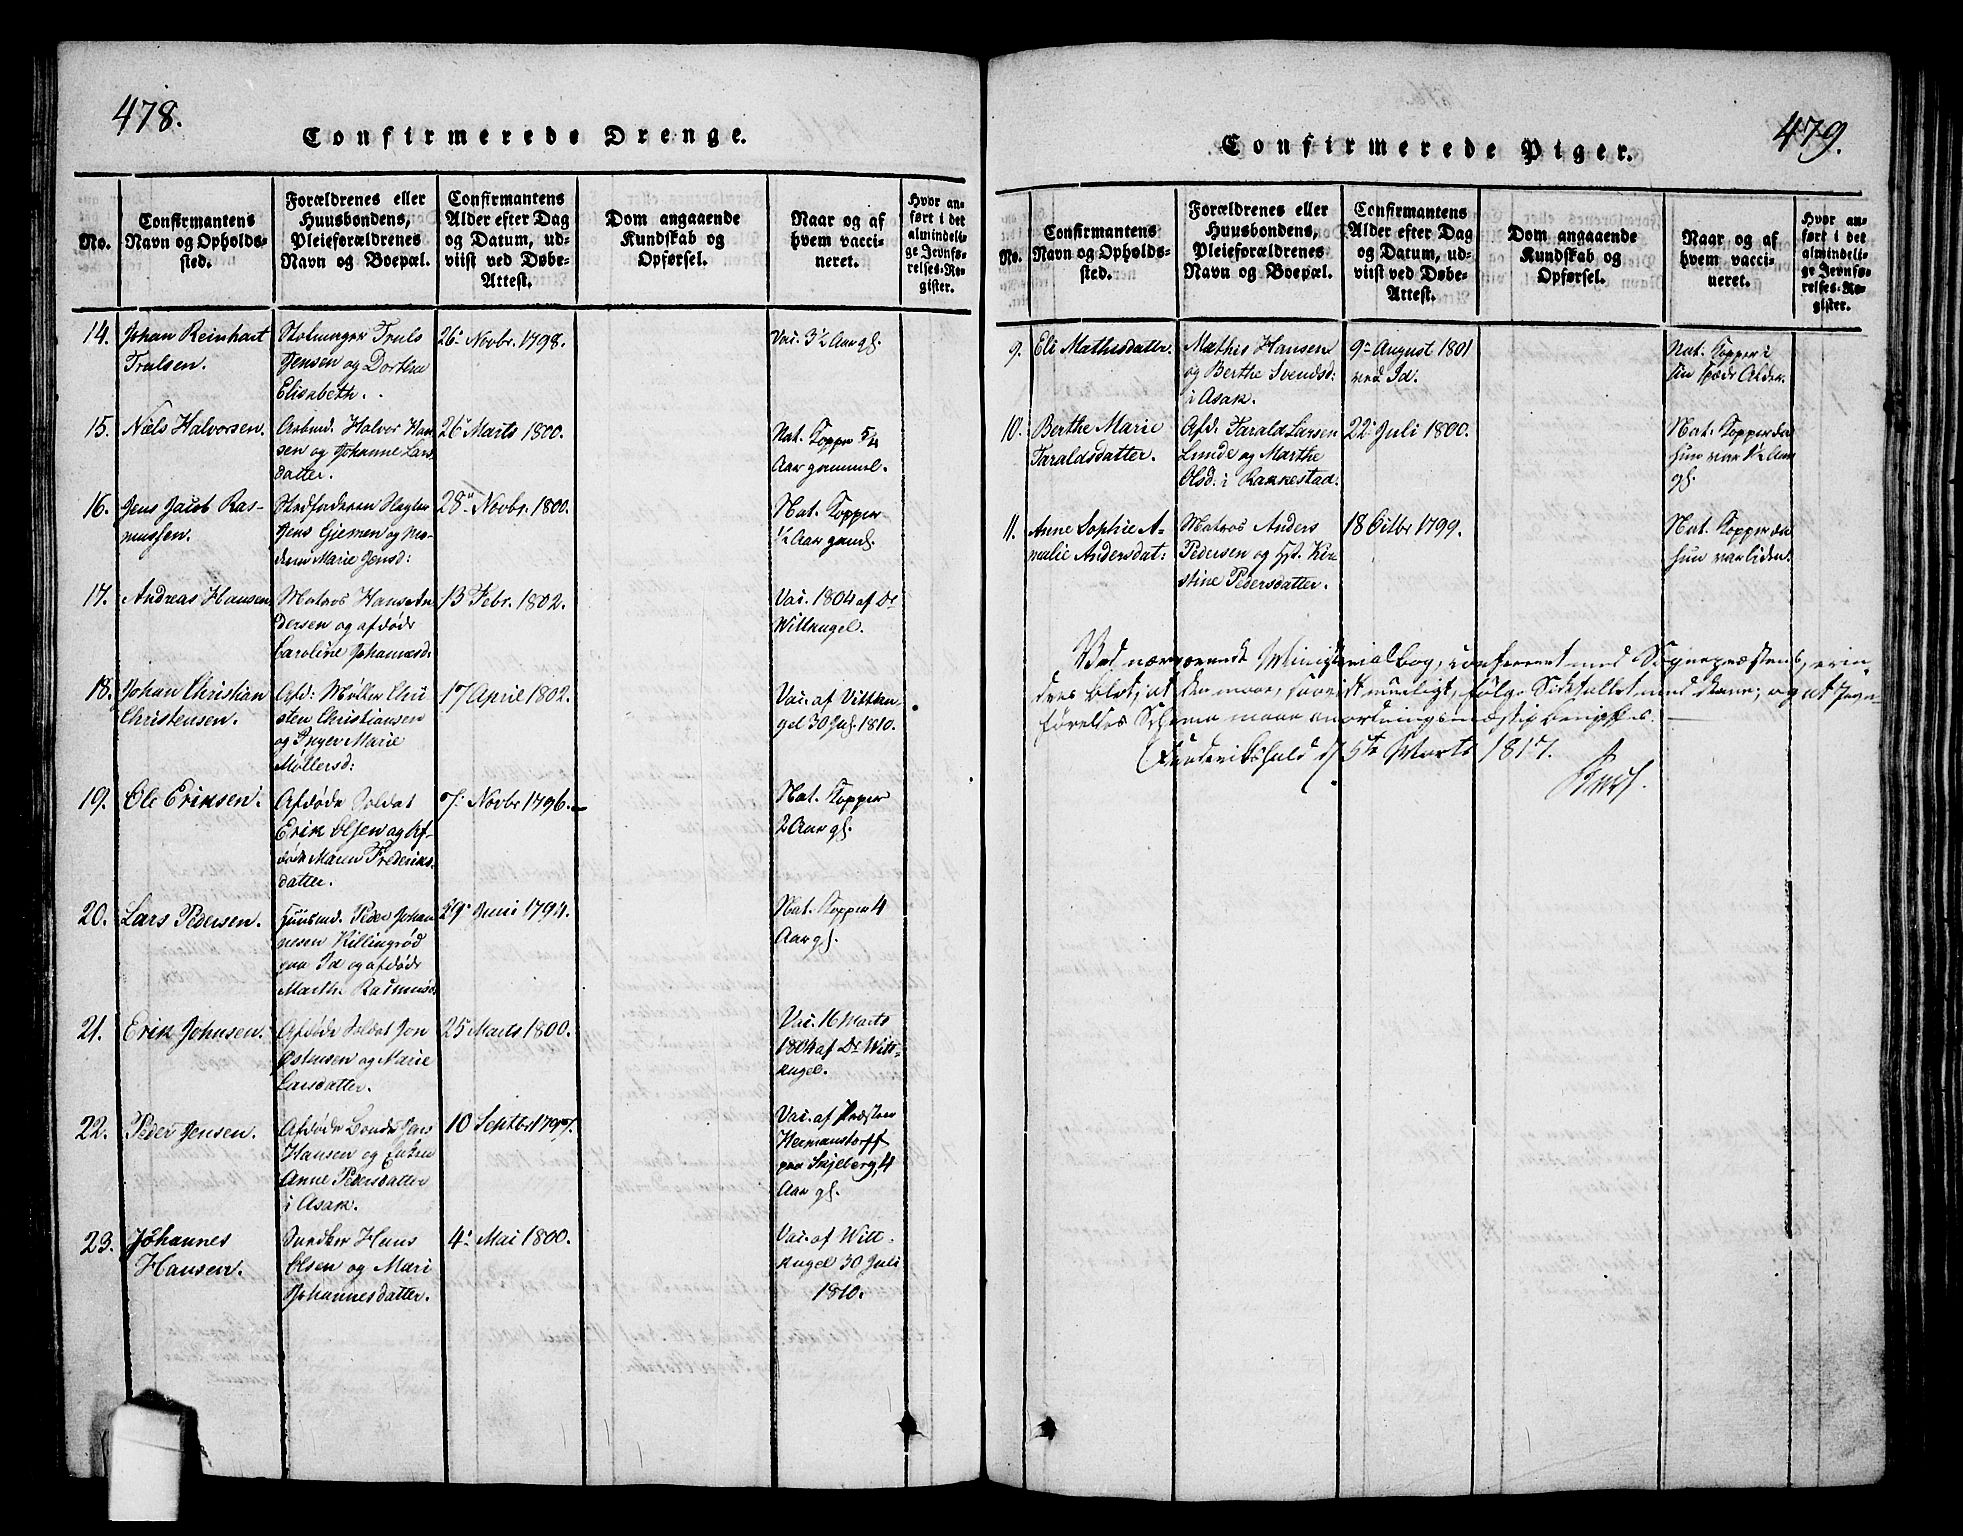 478.
Confirmerede Drenge.
No.
Confirmantens
Navn og Opholds-
sted.
Forældrenes eller
Huusbondens,
Pleieforældrenes
Navn og Boepæl.
Confirmantens
Alder efter Dag
og Datum, ud-
viist ved Døbe-
Attest.
Dom angaaende
Kundskab og
Opførsel.
Naar og af
hvem vacci-
neret.
Hvor an-
ført i det
almindeli-
ge Jevnfø-
relses-Re-
gister.
14.
Johan Reinhart
Trulsen.
Truls
Jensen og Dorthea
Elisabeth.
26. Novbr. 1798.
Vac. 3½ Aar gl.
15.
Niels Halvorsen.
Arbmd. Halvor Han
sen og Johanne Lars
datter.
26 Marts 1800.
Nat. Kopper 5/4
Aar gammel.
16.
Jens Jacob Ras-
mussen.
Stedfaderen
Jens Gjemen og Mo-
deren Marie Jensd:
28. Novbr. 1800.
Nat. Kopper
½ Aar gaml.
17.
Andreas Hansen
Matros Hans An
dersen og afdøde
Caroline Johannesd:
13 Febr. 1802.
Vac. 1804 af Dr
Wittkugel.
18.
Johan Christian
Christensen.
Afd: Møller Chri
sten Christiansen
og Inger Marie
Møllersd:
17 April 1802.
Vac. af Vittku
gel 30 Jul. 1810.
19.
Ole Eriksen.
Afdøde Soldat
Erik Olsen og Af-
døde Maren Frederiks-
datter.
7. Novbr 1796.
Nat. Kopper
2 Aar gl.
20.
Lars Pedersen.
Huusmd. Peder Johan
nesen Killingrød
paa Id og afdøde
Marthe Rasmusd:
29. Juni 1794.
Nat. Kopper 4
Aar gl.
21.
Erik Johnsen.
Afdøde Soldat Jon
Østensen og Marie
Larsdatter.
25 Marts 1800.
Vac. 16 Marts
1804 af Dr Witt-
kugel.
22.
Peder Jensen.
Afdøde Bonde
Hansen og Enken
Anne Pedersdatter
i Asak.
10 Septbr 1797.
Vac. af Præsten
Hermanstorff
paa Skjeberg, 4
Aar gl.
23.
Johannes
Hansen.
Hans
Olsen og Mari
Johannesdatter.
4. Mai 1800.
Vac. af Witt-
kugel 30 Juli
1810.
479.
Confirmerede Piger.
No.
Confirmantens
Navn og Opholds-
sted.
Forældrenes eller
Huusbondens,
Pleieforældrenes
Navn og Boepæl.
Confirmantens
Alder efter Dag
og Datum, ud-
viist ved Døbe-
Attest.
Dom angaaende
Kundskab og
Opførsel.
Naar og af
hvem vacci-
neret.
Hvor an-
ført i det
almindeli-
ge Jevnfø-
relses-Re-
gister.
9.
Eli Mathisdatter.
Mathis Hansen
og Berthe Svendsd:
i Asak.
9. August 1801
ved Id.
Nat. Kopper i
sin spæde Alder.
10.
Berthe Marie
Taraldsdatter.
Afd. Tarald Larsen
Lunde og Marthe
Olsd. i Rakkestad.
22. Juli 1800.
Nat. Kopper da
hun var ½ Aar
gl.
11.
Anne Sophie A-
malie Andersdat:
Matros Anders
Pedersen og Kir
stine Pedersdatter.
18 Octbr 1799.
Nat. Kopper da
hun var liden.
Ved nærværende Ministerialbog, confereret med Sognepræstens, erin-
dres blot, at den maae, saavidt mueligt, følge Sidetallet med denne; og at Jevn-
førelses Schema maae anordningsmæssig benyttes.
Frederikshald d. 5te Marts 1817.